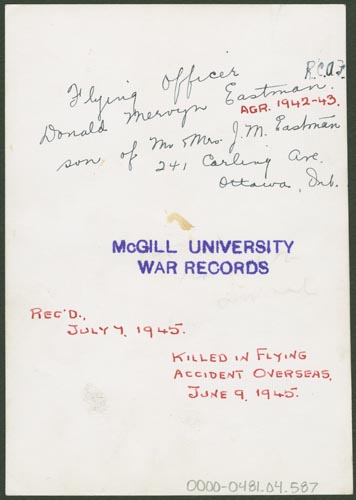 Flying Officer R.C.A.F.
Donald Mervyn Eastman.
AGR. 1942-43.
son of Mr & Mrs. J.M. Eastman
241 Carling Ave.
Ottawa, Ont.
McGILL UNIVERSITY
WAR RECORDS
REC'D.,
JULY 7, 1945.
KILLED IN FLYING
ACCIDENT OVERSEAS,
JUNE 9, 1945.
0000-0481.04.587